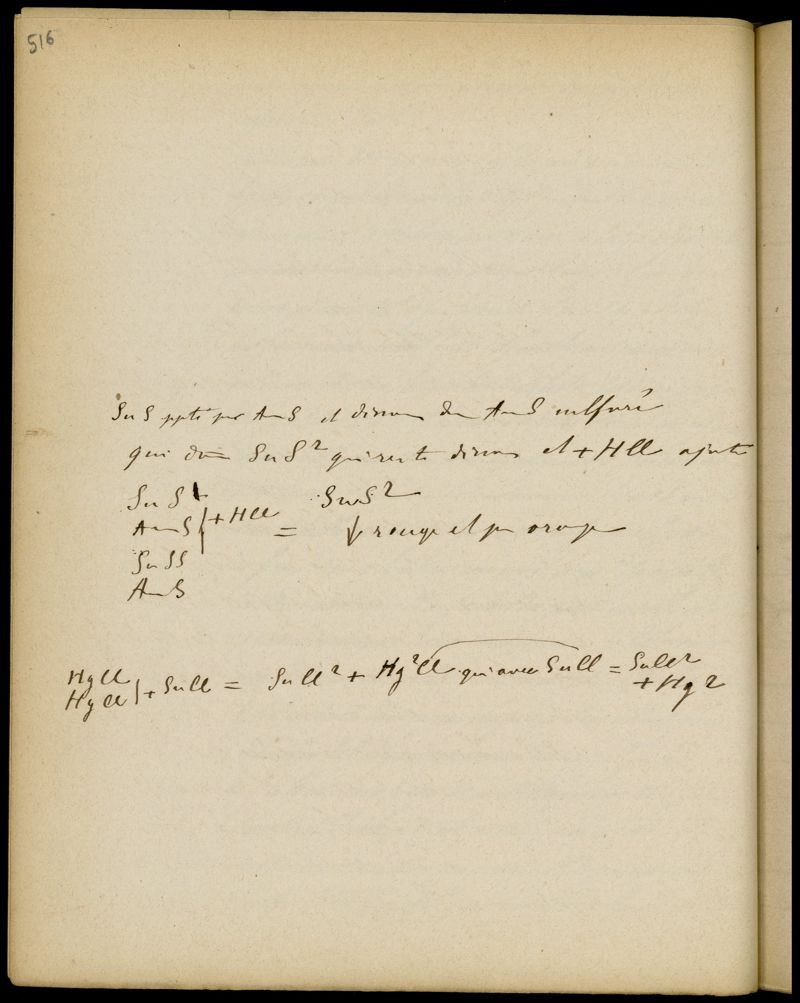 516
SnS ppté par AmS et dissous dans AmS sulfuré
qui donne SnS² qui reste dissous et + HCl ajouté
SnS +
AmS } + HCl = SnS²
↓ rouge et pr orange
SnSS
AmS
HgCl
HgCl } + SnCl = SnCl² + Hg²Cl qui avec SnCl = SnCl²
+ Hg²